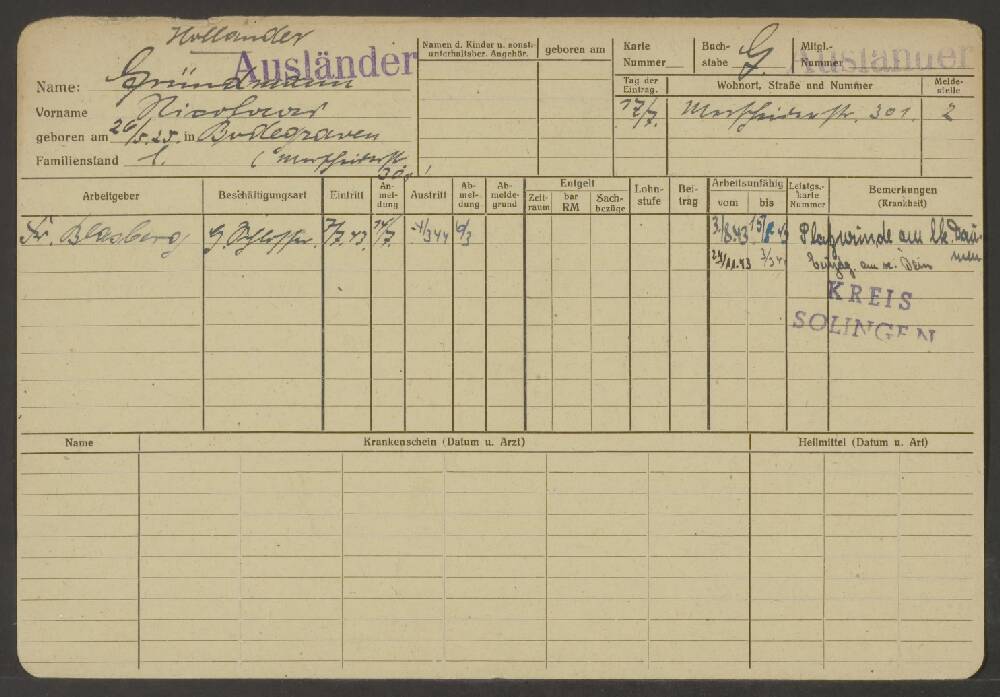 Holländer
Ausländer
Name: Gründmann
Vorname Nicolaas
geboren am 26/5.25. in Bodegraven
Familienstand l. (Merscheiderstr. 300)
Namen d. Kinder u. sonst. unterhaltsber. Angehör.
geboren am
Karte Nummer
Buchstabe G.
Mitgl.-Nummer
Ausländer
Tag der Eintrag.
Wohnort, Straße und Nummer
Meldestelle
17/7. Merscheiderstr. 301. 2
Arbeitgeber
Beschäftigungsart
Eintritt
Anmeldung
Austritt
Abmeldung
Abmeldegrund
Entgelt
Zeitraum
bar RM
Sachbezüge
Lohnstufe
Beitrag
Arbeitsunfähig
vom
bis
Leistgs.-karte Nummer
Bemerkungen (Krankheit)
Fr. Blasberg
7/7.43
4/3 44
3/8.43 15/8 43 Platzwunde am lk. Daumen
29/11.43 am re. Bein
KREIS
SOLINGEN
Name
Krankenschein (Datum u. Arzt)
Heilmittel (Datum u. Art)